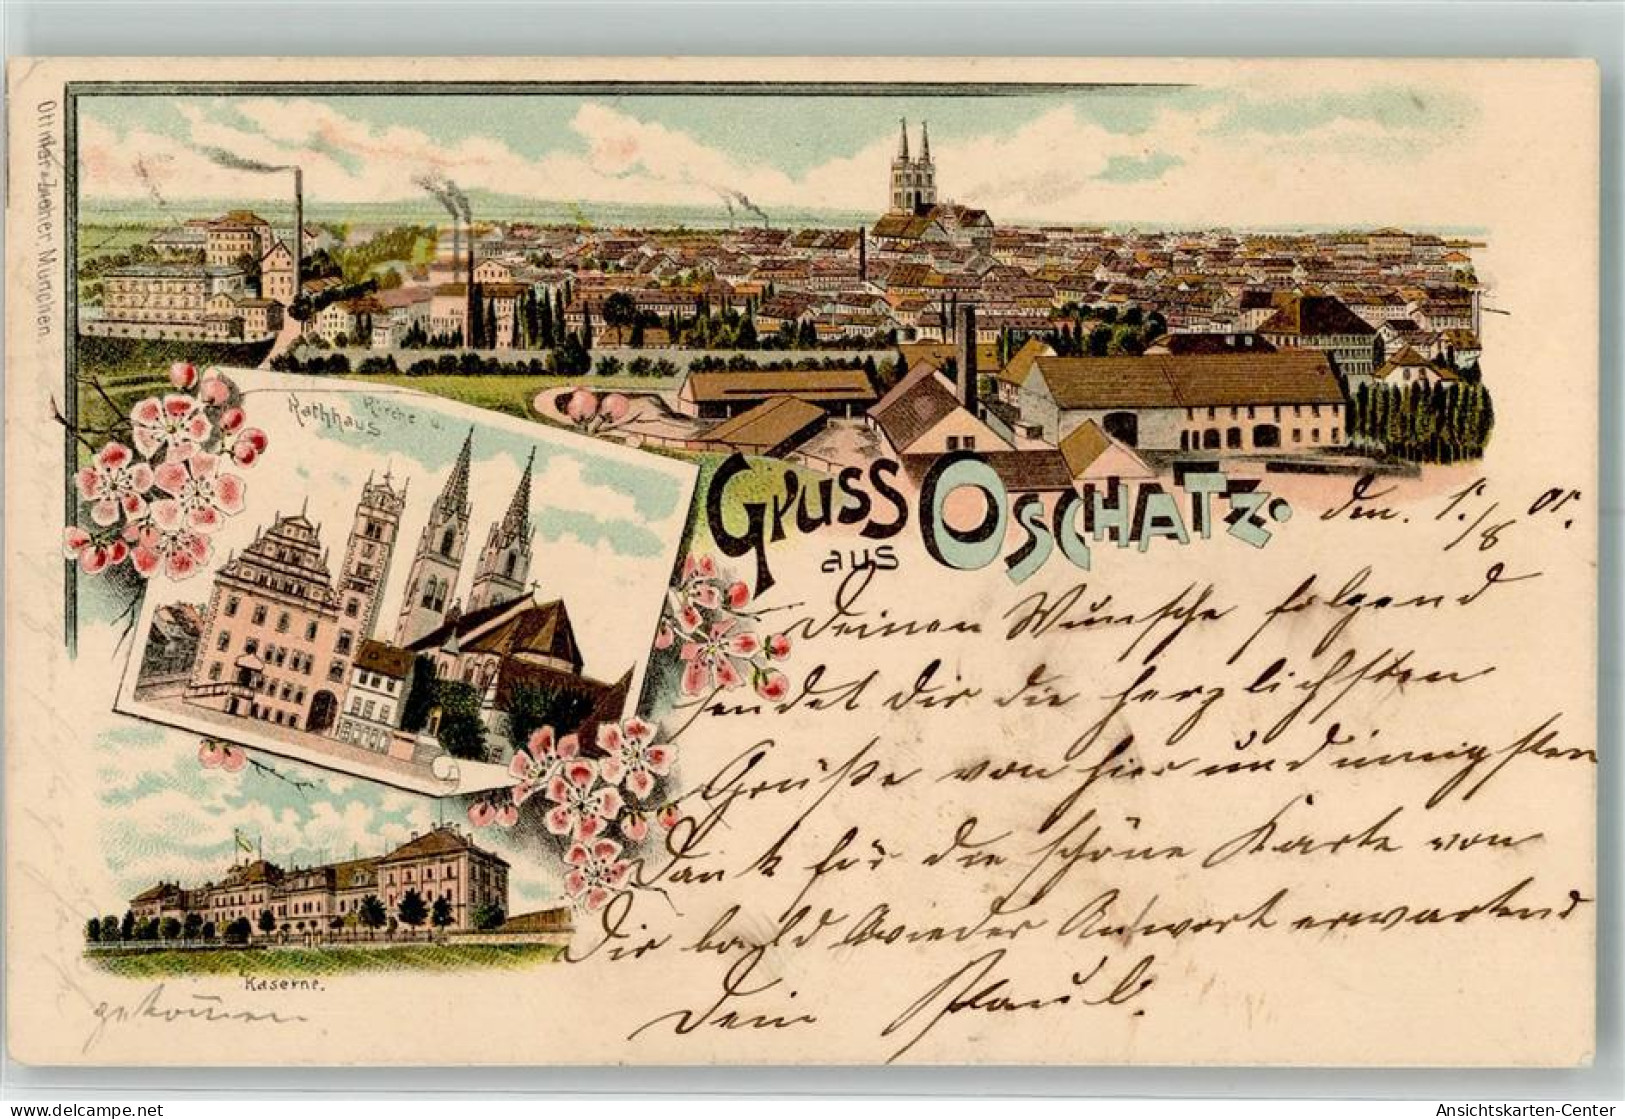 Ottmar Zieher, München.
Rathhaus Kirche u.
Gruss
aus Oschatz.
den. 1./8 01.
Deinen Wunsche folgend
sendet Dir die herzlichsten
Grüße von hier und innigsten
Dank für die schöne Karte von
Dir bald wieder Antwort erwartend
Dein Paul.
Kaserne.
gekommen
Ansichtskarten-Center
delcampe.net